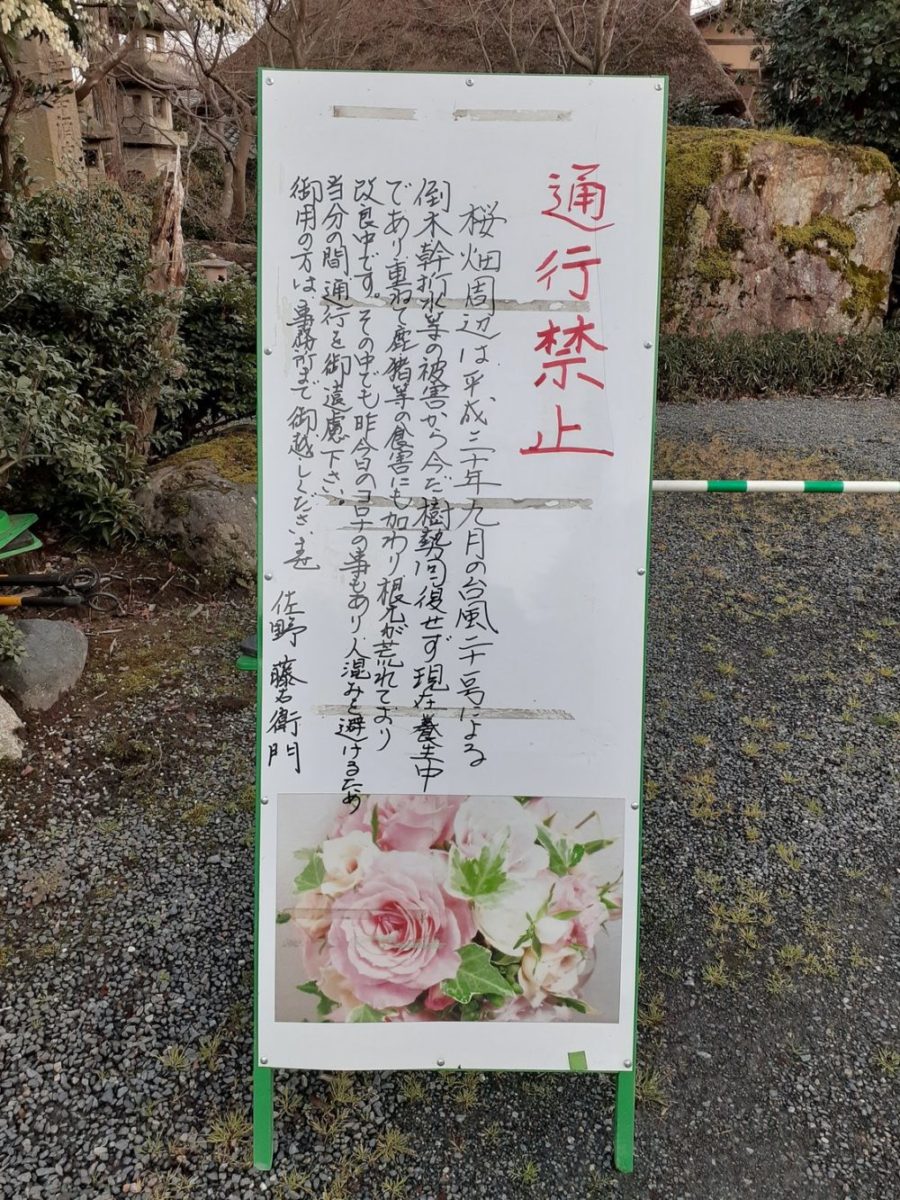 通行禁止
桜畑周辺は平成三十年九月の台風二十一号による
倒木幹折水等の被害から今だ樹勢回復せず現在養生中
であり重ねて鹿猪等の食害にも加わり根元が荒れており
改良中です。その中でも昨今のコロナの事もあり人混みを避けるため
当分の間通行を御遠慮下さい。
御用の方は事務所まで御越しくださいませ
佐野藤右衛門